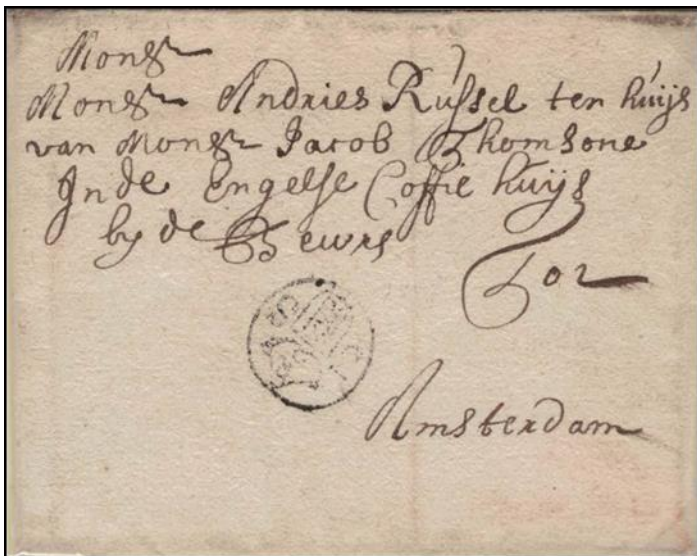 Monsr
Monsr Andries Rússel ten húijs
van Monsr Jacob Thomsone
In de Engelse Coffie húijs
by de Beurs
Tot
Amsterdam